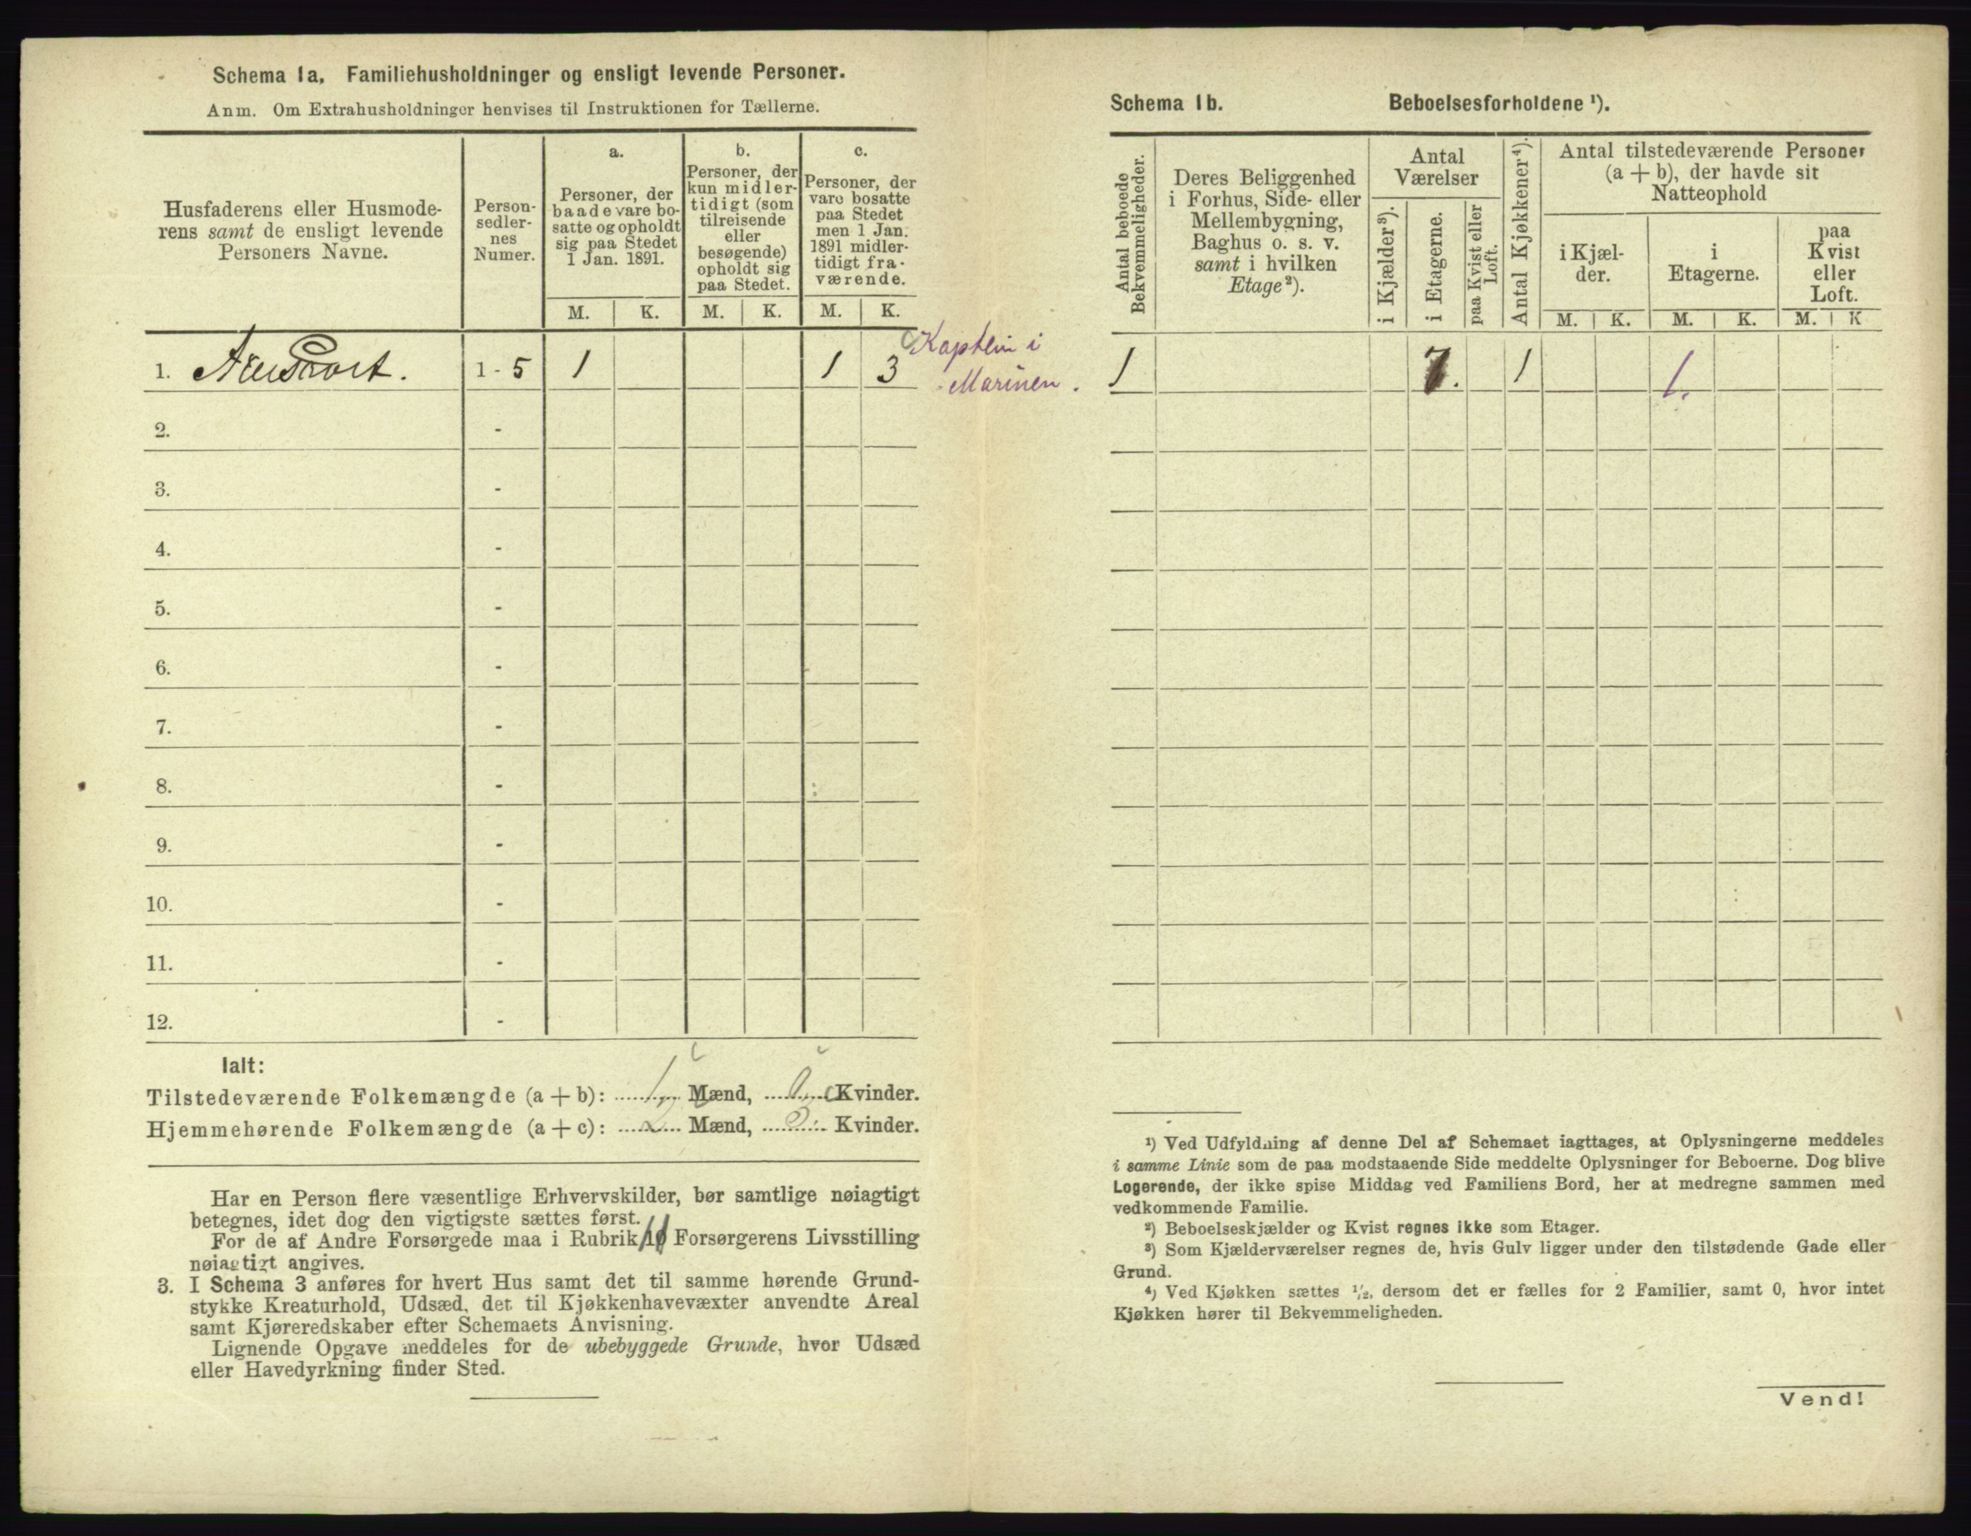 Schema 1a. Familiehusholdninger og ensligt levende Personer.
Anm. Om Extrahusholdninger henvises til Instruktionen for Tællerne.
Husfaderens eller Husmode-
rens samt de ensligt levende
Personers Navne.
Person-
sedler-
nes
Numer.
a.
Personer, der
baade vare bo-
satte og opholdt
sig paa Stedet
1 Jan. 1891.
b.
Personer, der
kun midler-
tidigt (som
tilreisende
eller
besøgende)
opholdt sig
paa Stedet.
c.
Personer, der
vare bosatte
paa Stedet
men 1 Jan.
1891 midler-
tidigt fra-
værende.
M. K. M. K. M. K.
1. 1 - 5 1 1 3
Kaptein i
Marinen.
2. -
3. -
4. -
5. -
6. -
7. -
8. -
9. -
10. -
11. -
12. -
Ialt:
Tilstedeværende Folkemængde (a + b): 1 Mænd, 0 Kvinder.
Hjemmehørende Folkemængde (a + c): 2 Mænd, 3 Kvinder.
Har en Person flere væsentlige Erhvervskilder, bør samtlige nøiagtigt
betegnes, idet dog den vigtigste sættes først.
For de af Andre Forsørgede maa i Rubrik 11 Forsørgerens Livsstilling
nøiagtigt angives.
3. I Schema 3 anføres for hvert Hus samt det til samme hørende Grund-
stykke Kreaturhold, Udsæd, det til Kjøkkenhavevæxter anvendte Areal
samt Kjøreredskaber efter Schemaets Anvisning.
Lignende Opgave meddeles for de ubebyggede Grunde, hvor Udsæd
eller Havedyrkning finder Sted.
Schema 1b. Beboelsesforholdene ¹).
Antal beboede
Bekvemmeligheder.
Deres Beliggenhed
i Forhus, Side- eller
Mellembygning,
Baghus o. s. v.
samt i hvilken
Etage²).
Antal
Værelser
i Kjælder³).
i Etagerne.
paa Kvist eller
Loft.
Antal Kjøkkener⁴).
Antal tilstedeværende Personer
(a + b), der havde sit
Natteophold
i Kjæl-
der.
i
Etagerne.
paa
Kvist
eller
Loft.
M. K. M. K. M. K
1 7. 1 1.
¹) Ved Udfyldning af denne Del af Schemaet iagttages, at Oplysningerne meddeles
i samme Linie som de paa modstaaende Side meddelte Oplysninger for Beboerne. Dog blive
Logerende, der ikke spise Middag ved Familiens Bord, her at medregne sammen med
vedkommende Familie.
²) Beboelseskjælder og Kvist regnes ikke som Etager.
³) Som Kjælderværelser regnes de, hvis Gulv ligger under den tilstødende Gade eller
Grund.
⁴) Ved Kjøkken sættes ½, dersom det er fælles for 2 Familier, samt 0, hvor intet
Kjøkken hører til Bekvemmeligheden.
Vend!